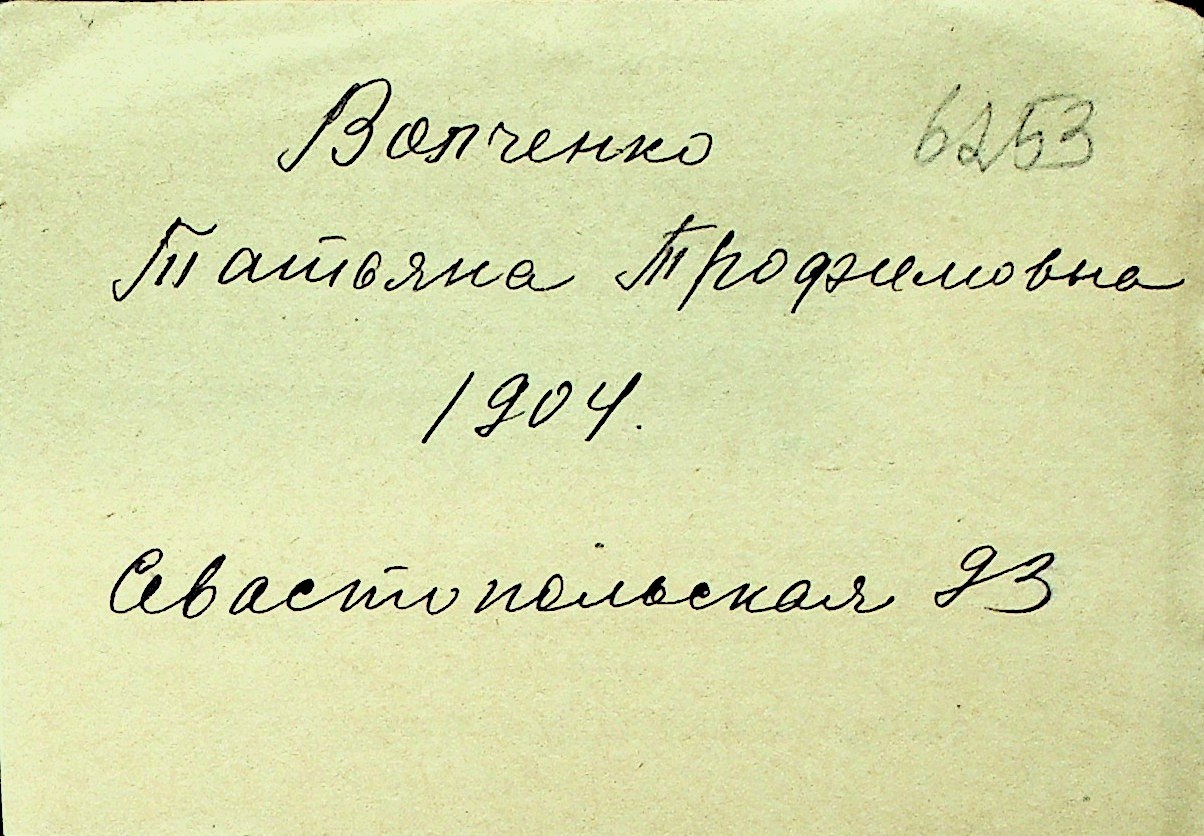 Волченко 6253
Татьяна Трофимовна
1904.
Севастопольская 93